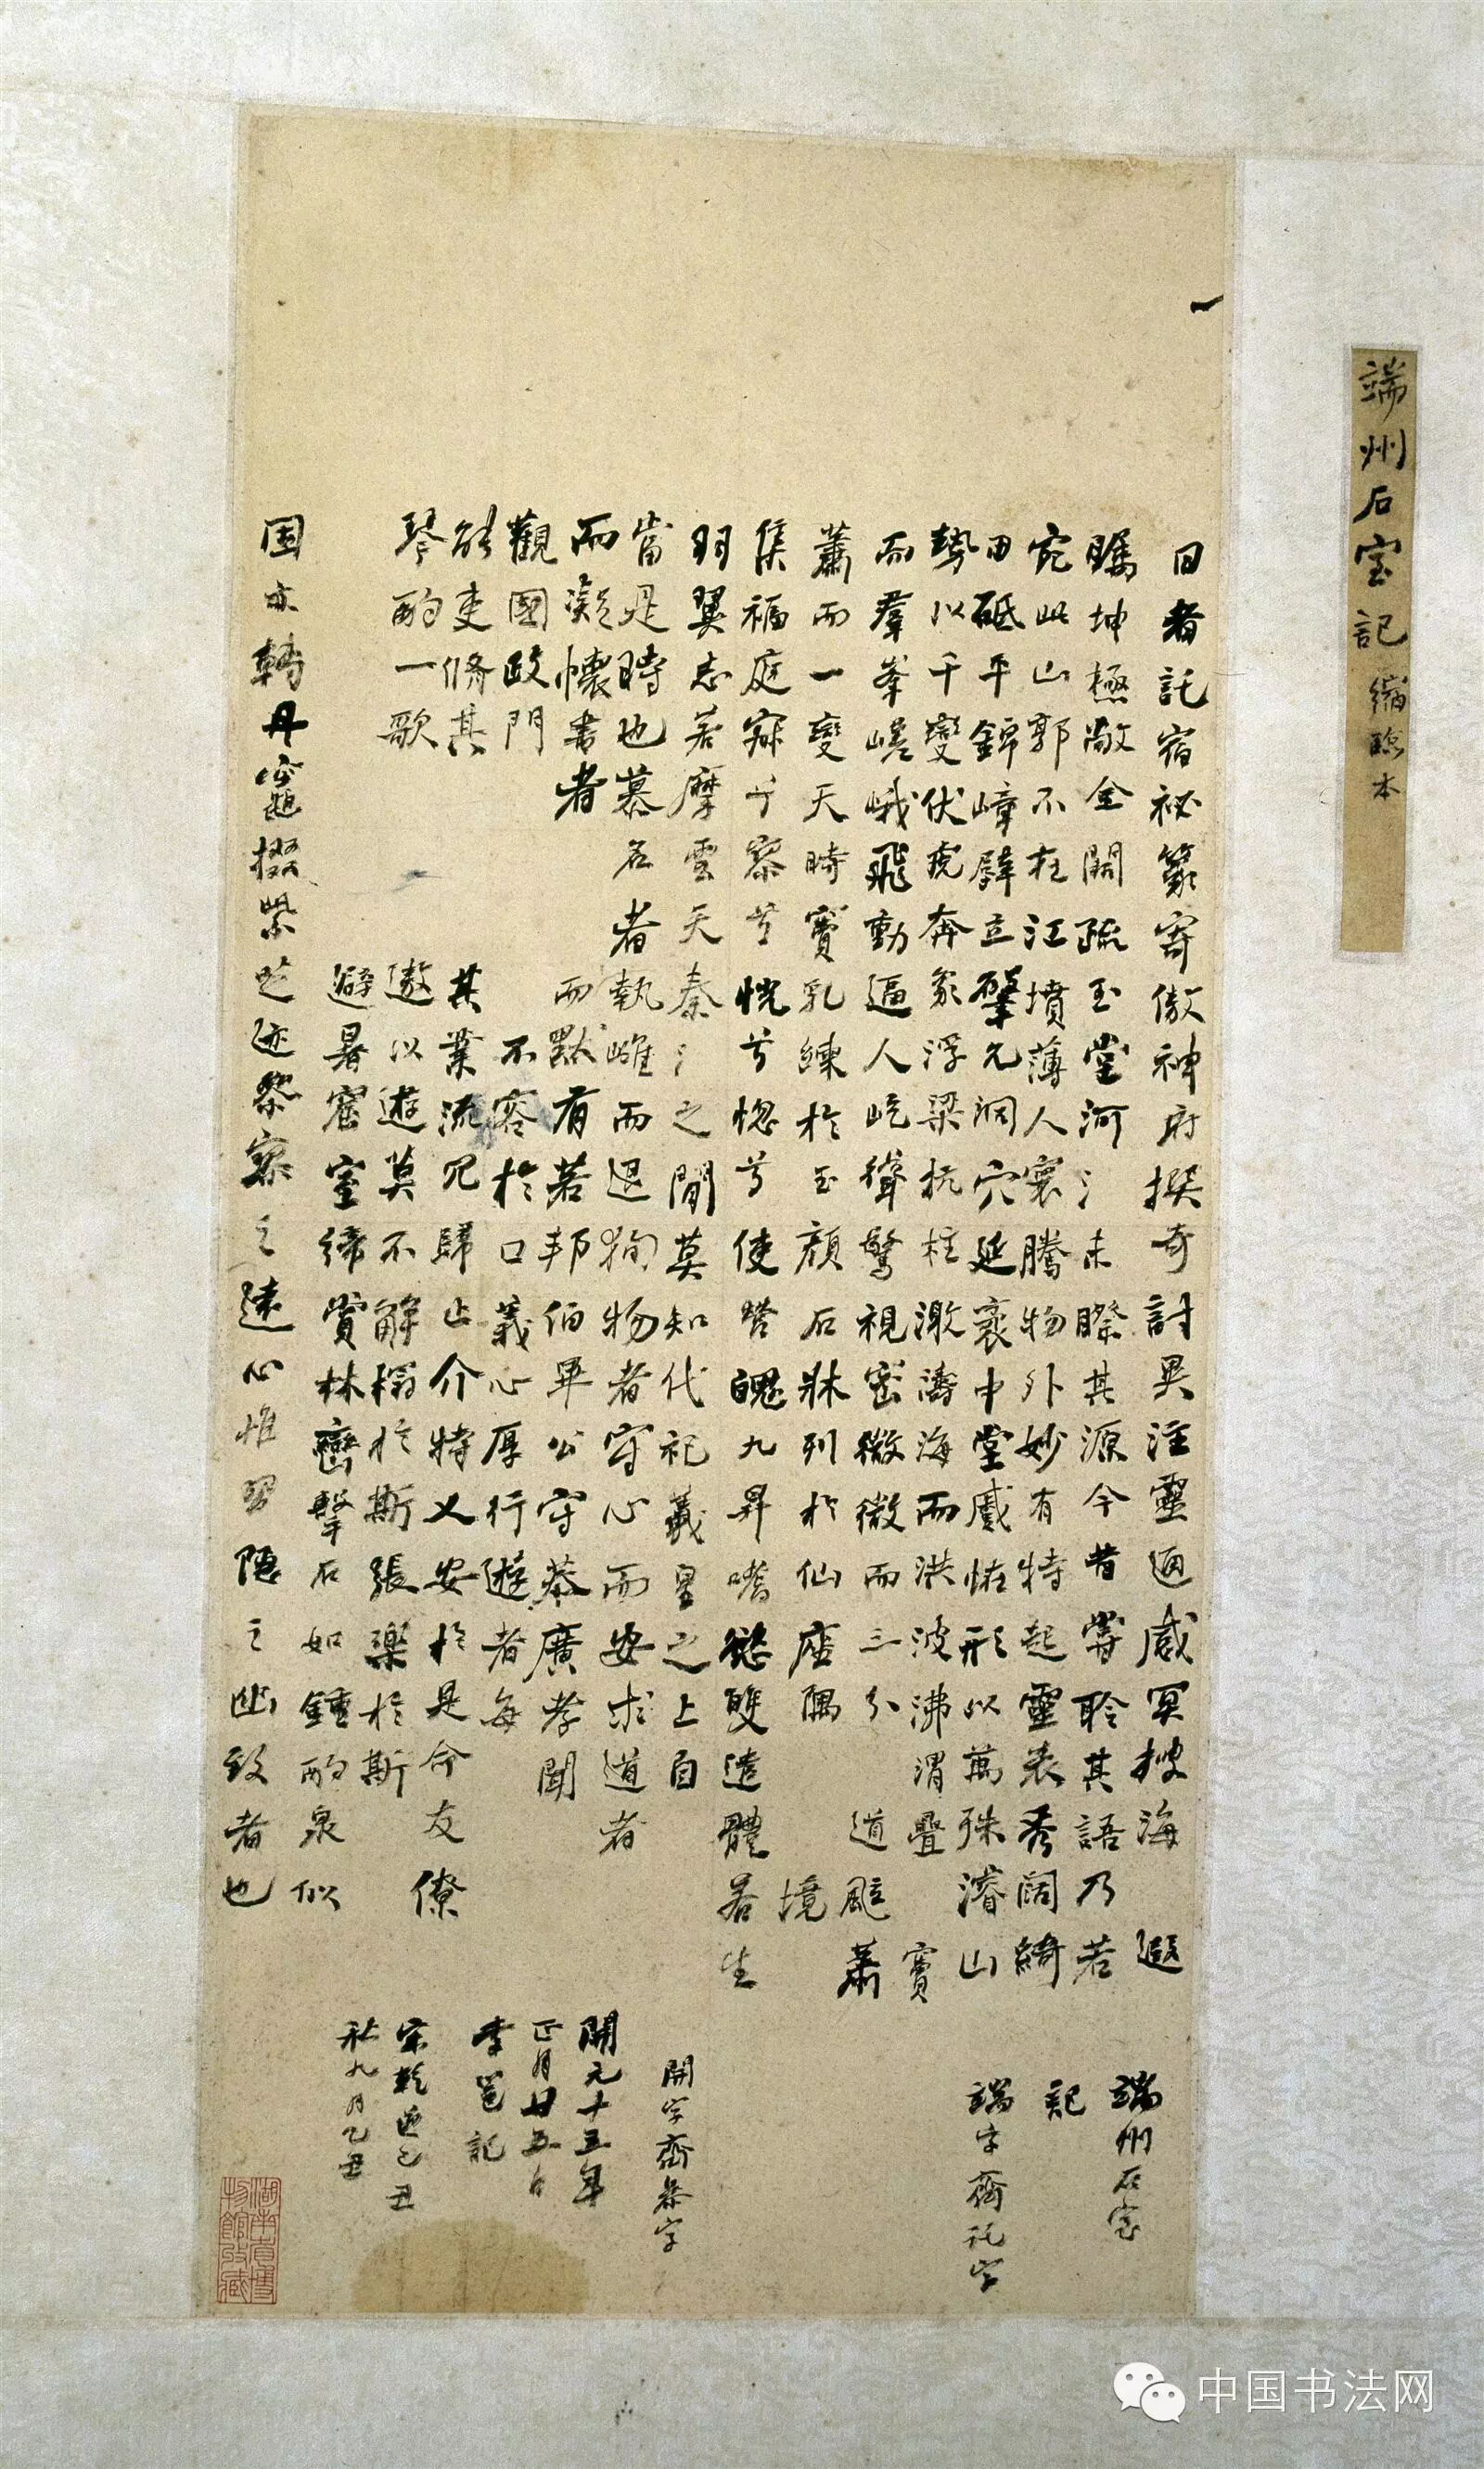 端州石室記 縮臨本
一
日者託宿祕籙寄傲神府撰奇討異注靈通感冥搜海遐
矚坤極敞金闕疏玉堂河漢未睽其源今昔嘗聆其語乃若
宛此山郭不在江墳薄人寰騰物外妙有特起靈表秀闊綺
田砥平錦嶂壁立擘元洞穴延袤中堂感怪形以萬殊濬山
勢以千變伏虎奔象浮梁抗柱激濤海而洪波沸渭疊
而羣峯嵯峨飛動逼人屹聳驚視密微微而三分道飈
蕭而一變天時寶乳練於玉顏石牀列於仙座隅境
集福庭寂乎寥兮恍兮惚兮使營魄九昇嗜慾雙遣體若生
羽翼志若摩雲天秦漢之間莫知代祀羲皇之上自
當是時也慕名者執雌而退徇物者守心而安求道者
而凝懷書者而默有若邦伯畢公守恭廣孝聞
觀國政門不容於口義心厚行遊者每
能吏脩其其業流冗歸止介特乂安於是命友僚
琴酌一歌遨以遊莫不解榻於斯張樂於斯
避暑窟室締賞林巒擊石如鍾酌泉似
固亦轉丹竈掇紫芝迹祭寥之遠心惟習隱之幽致者也
端州石室
記
端字齊託字
開字齊恭字
開元十五年
正月廿五日
李邕記
宋乾道己丑
秋九月乙丑
湖南省博
物館收藏
中国书法网